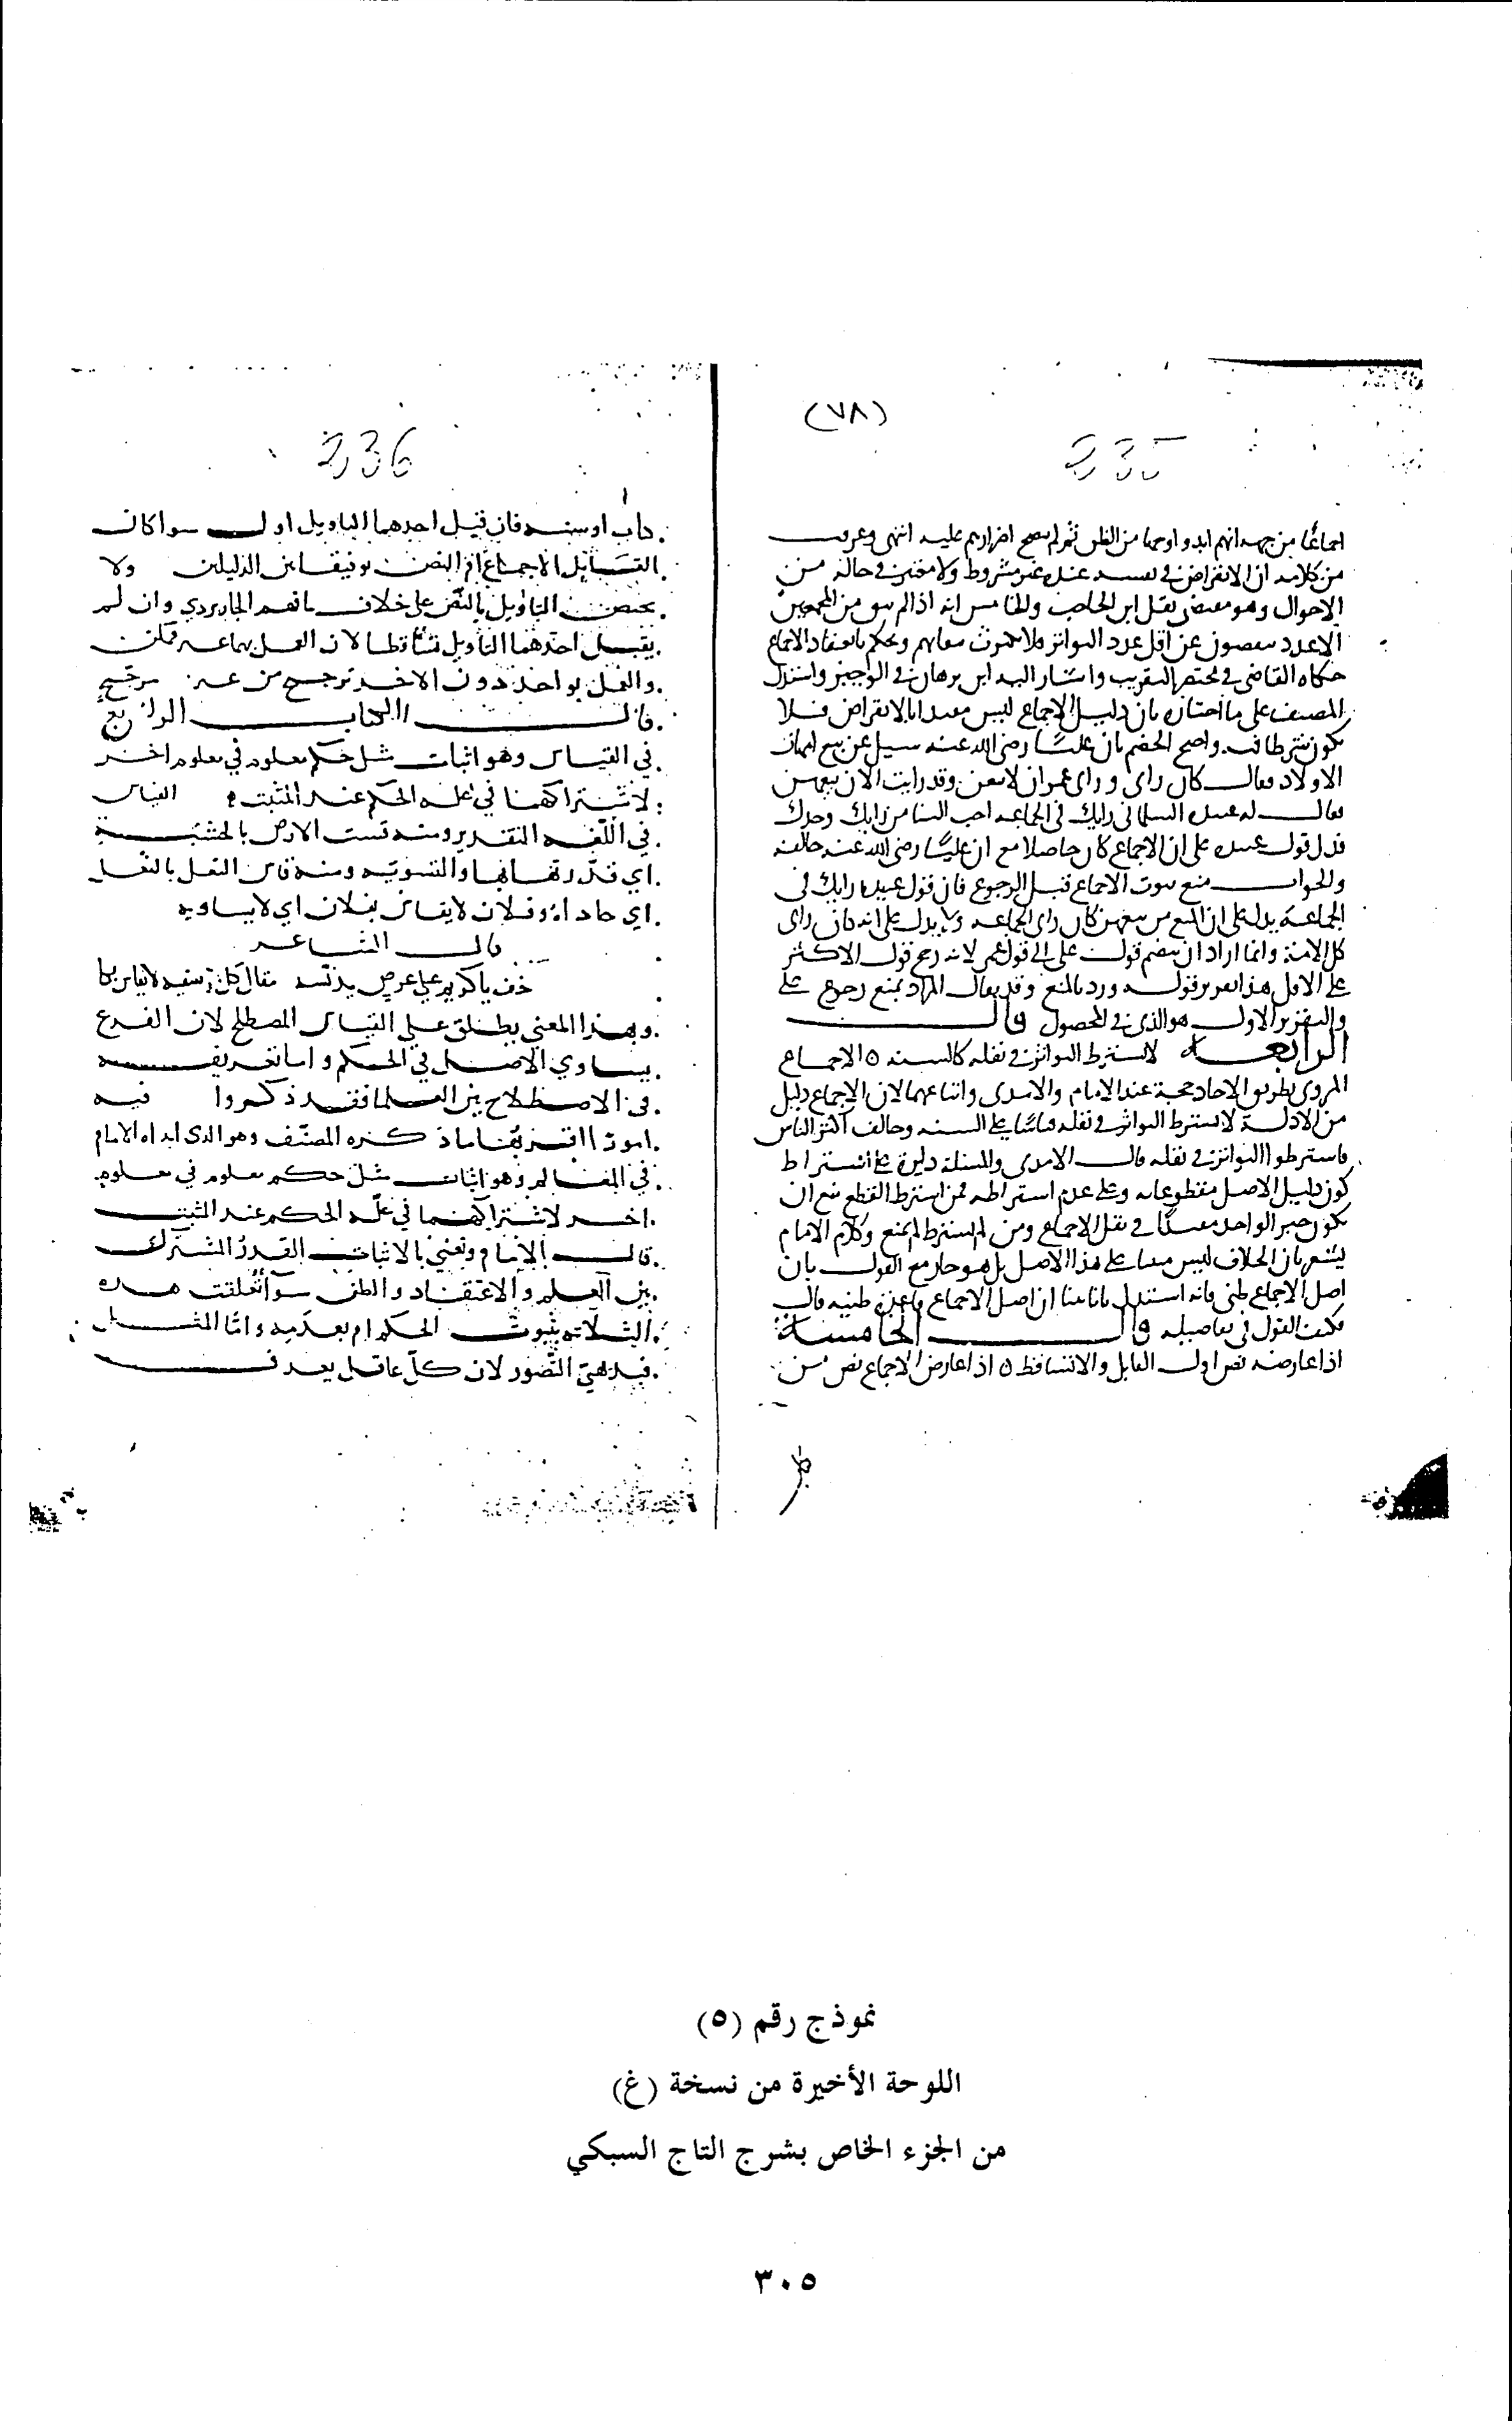 (٧٨)
235
اجماعًا من جهه انهم ابدوا وجها من الظن ثم لم يصح اضرارهم عليه انتهى وعرفت
من كلامه ان الانقراض في نفسه عنده غير مشروط ولا معتبر في حالة من
الاحوال وهو مقتضى نقل ابن الحاجب والخامس انه اذا لم يبق من المجمعين
الا عدد ينقصون عن اقل عدد التواتر فلا يكترث ببقائهم ويحكم بانعقاد الاجماع
حكاه القاضي في مختصر التقريب واشار اليه ابن برهان في الوجيز واستدل
المصنف على ما اختاره بان دليل الاجماع ليس مقيدا بالانقراض فلا
يكون شرطا فيه واحتج الخصم بان عليًا رضي الله عنه سيل عن بيع امهات
الاولاد فقال كان رايي وراى عمر ان لا يبعن وقد رايت الان بيعهن
فقال له عبيده السلماني رايك في الجماعه احب الينا من رايك وحدك
فدل قول عبيده على ان الاجماع كان حاصلا مع ان عليًا رضي الله عنه خالفه
والجواب منع ثبوت الاجماع قبل الرجوع فان قول عبيده رايك في
الجماعة يدل على ان المنع من بيعهن كان راى الجماعه ولا يدل على انه كان راى
كل الامة وانما اراد ان ينضم قول على الى قول عمر لانه رجح قول الاكثر
على الاقل هذا تقرير قوله ورد بالمنع وقد يقال المراد بمنع رجوع على
والتقرير الاول هو الذى في المحصول قال
الرابعة لا يشترط التواتر في نقله كالسنه ٥ الاجماع
المروى بطريق الاحاد حجة عند الامام والامدى واتباعهما لان الاجماع دليل
من الادلة لا يشترط التواتر في نقله قياسًا على السنه وخالف اكثر الناس
فاشترطوا التواتر في نقله قال الامدى والمسئلة دايرة على اشتراط
كون دليل الاصل مقطوعا به وعلى عدم اشتراطه فمن اشترط القطع منع ان
يكون خبر الواحد مفيدًا في نقل الاجماع ومن لم يشترط لم يمنع وكلام الامام
يشعر بان الخلاف ليس مبنيا على هذا الاصل بل هو جار مع القول بان
اصل الاجماع ظني فانه استدل بانا بينا ان اصل الاجماع قاعدة ظنيه قال
فكيف القول في تفاصيله قال الخامسة
اذا عارضه نص اول القابل والا تساقطا ٥ اذا عارض الاجماع نص من
236
كتاب او سنه فان قبل احدهما التاويل اول سوا كان
القابل الاجماع ام النص توفيقا بين الدليلين ولا
يختص التاويل بالنص على خلاف ما فهم الجاربردي وان لم
يقبل احدهما التاويل تساقطا لان العمل بهما غير ممكن
والعمل بواحد دون الاخر ترجيح من غير مرجح
قال الكتاب الرابع
في القياس وهو اثبات مثل حكم معلوم في معلوم اخر
لاشتراكهما في علة الحكم عند المثبت ٥ القياس
في اللغه التقدير ومنه قست الارض بالخشبة
اي قدرتها بها والتسويه ومنه قاس النعل بالنعل
اي حاذاه وفلان لا يقاس بفلان اي لا يساويه
قال الشاعر
خف يا كريم على عرض يدنسه مقال كل سفيه لا يقاس بكا
وبهذا المعني يطلق علي القياس المصطلح لان الفرع
يساوي الاصل في الحكم واما تعريفه
في الاصطلاح بين العلما فقد ذكروا فيه
امورًا اقربها ما ذكره المصنف وهو الذى ابداه الامام
في المعالم وهو اثبات مثل حكم معلوم في معلوم
اخر لاشتراكهما في علة الحكم عند المثبت
قال الامام ونعني بالاثبات القدر المشترك
بين العلم والاعتقاد والظن سوآ تعلقت هذه
الثلاثه بثبوت الحكم ام بعدمه وامّا المثل
فبدهيّ التصور لان كلّ عاقل يعرف
نموذج رقم (٥)
اللوحة الأخيرة من نسخة (غ)
من الجزء الخاص بشرح التاج السبكي
٣٠٥